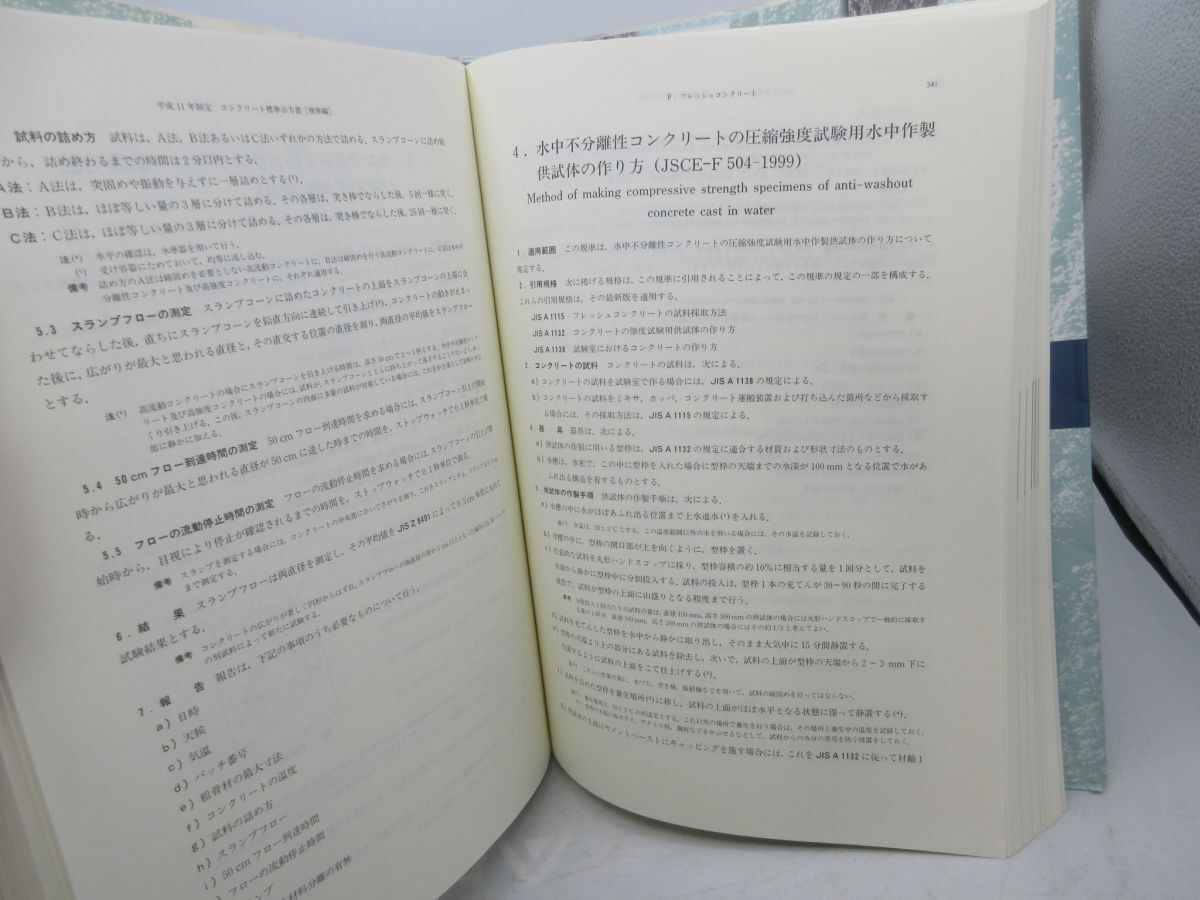 平成11年制定 コンクリート標準示方書［規準編］
試料の詰め方 試料は，A法，B法あるいはC法いずれかの方法で詰める．スランプコーンに詰め始
から，詰め終わるまでの時間は2分以内とする．
A法：A法は，突固めや振動を与えずに一層詰めとする(⁶)．
B法：B法は，ほぼ等しい量の3層に分けて詰める．その各層は，突き棒でならした後，5回一様に突く．
C法：C法は，ほぼ等しい量の3層に分けて詰める．その各層は，突き棒でならした後，25回一様に突く．
水平の確認は，水準器を用いて行う．
受け容器にためておいて，均等に流し込む．
備考 詰め方のA法は締固めを必要としない高流動コンクリートに，B法は締固めを行う高流動コンクリートに，C法は水中不
分離性コンクリート及び高強度コンクリートに，それぞれ適用する．
5.3 スランプフローの測定 スランプコーンに詰めたコンクリートの上面をスランプコーンの上端に合
わせてならした後，直ちにスランプコーンを鉛直方向に連続して引き上げ，コンクリートの動きが止まっ
た後に，広がりが最大と思われる直径と，その直交する位置の直径を測り，両直径の平均値をスランプフロー
とする．
高流動コンクリートの場合にスランプコーンを引き上げる時間は，高さ30cmで2〜3秒とする．水中不分離性コンク
リート及び高強度コンクリートの場合には，試料が，スランプコーンとともに持ち上がって落下することのないよう，ゆっ
くり引き上げる．この後，スランプコーンの内面に多量の試料が付着している場合には，これをかき落として試料の中心
部に静かに加える．
5.4 50cmフロー到達時間の測定 50cmフロー到達時間を求める場合には，スランプコーン引上げ開始
時から広がりが最大と思われる直径が50cmに達した時までの時間を，ストップウォッチで0.1秒単位で測
る．
5.5 フローの流動停止時間の測定 フローの流動停止時間を求める場合には，スランプコーンの引上げ開
始時から，目視により停止が確認されるまでの時間を，ストップウォッチで0.1秒単位で測る．
備考 スランプを測定する場合には，コンクリートの中央部において下がりを測り，これをスランプとする．スランプは0.5cm
まで測定する．
6. 結 果 スランプフローは両直径を測定し，その平均値をJIS Z 8401によって0.5cm単位に丸めて
試験結果とする．
備考 コンクリートの広がりが著しく円形からはずれ，スランプフローの両直径の差が5cm以上となった場合には同一バッチ
の別試料によって新たに試験する．
7. 報 告 報告は，下記の事項のうち必要なものについて行う．
a) 日時
b) 天候
c) 気温
d) バッチ番号
e) 粗骨材の最大寸法
f) コンクリートの温度
g) 試料の詰め方
h) スランプフロー
i) 50cmフロー到達時間
フローの流動停止時間
ンプ
材料分離の有無
F．フレッシュコンクリート
341
4．水中不分離性コンクリートの圧縮強度試験用水中作製
供試体の作り方（JSCE-F 504-1999）
Method of making compressive strength specimens of anti-washout
concrete cast in water
1. 適用範囲 この規準は，水中不分離性コンクリートの圧縮強度試験用水中作製供試体の作り方について
規定する．
2. 引用規格 次に掲げる規格は，この規準に引用されることによって，この規準の規定の一部を構成する．
これらの引用規格は，その最新版を適用する．
JIS A 1115 フレッシュコンクリートの試料採取方法
JIS A 1132 コンクリートの強度試験用供試体の作り方
JIS A 1138 試験室におけるコンクリートの作り方
3. コンクリートの試料 コンクリートの試料は，次による．
a) コンクリートの試料を試験室で作る場合には，JIS A 1138の規定による．
b) コンクリートの試料をミキサ，ホッパ，コンクリート運搬装置および打ち込んだ箇所などから採取す
る場合には，その採取方法は，JIS A 1115の規定による．
4. 器 具 器具は，次による．
a) 供試体の作製に用いる型枠は，JIS A 1132の規定に適合する材質および形状寸法のものとする．
b) 水槽は，水密で，この中に型枠を入れた場合に型枠の天端までの水深が100mmとなる位置で水があ
ふれ出る構造を有するものとする．
5. 供試体の作製手順 供試体の作製手順は，次による．
a) 水槽の中に水がほぼあふれ出る位置まで上水道水(¹)を入れる．
注(¹) 水温は，20±3℃とする．この温度範囲以外の水を用いる場合には，その水温を記録しておく．
b) 水槽の中に，型枠の開口部が上を向くように，型枠を置く．
c) 代表的な試料を丸形ハンドスコップに採り，型枠容積の約10%に相当する量を1回分として，試料を
水面から静かに型枠中に分割投入する．試料の投入は，型枠1本の充てんが30〜90秒の間に完了する
速度で，試料が型枠の上面に山盛りとなる程度まで行う．
参考 分割投入1回当たりの試料の量は，直径150mm，高さ300mmの供試体の場合には丸形ハンドスコップで一般的に採取す
る量の1杯分，直径100mm，高さ200mmの供試体の場合にはその約1/3と考えてよい．
d) 試料を充てんした型枠を水中から静かに取り出し，そのまま大気中に15分間静置する．
e) 型枠の天端より上の部分にある試料を除去し，次いで，試料の上面が型枠の天端から2〜3mm下に
位置するように試料の上面をこて仕上げする(²)．
注(²) これらの作業の間に，木づち，突き棒，振動機などを用いて，試料の締固めを行ってはならない．
f) 試料を詰めた型枠を養生場所(³)に移し，試料の上面がほぼ水平となる状態に保って静置する(⁴)．
注(³) 養生場所は，20±3℃の恒温室とする．これ以外の場所で養生を行う場合は，その場所と養生中の温度を記録しておく．
(⁴) 型枠の天端に板ガラス，アクリル板，鋼板などをかぶせるなどして，試料からの水分の蒸発を防ぐ措置をしておく．
g) 供試体の上面にセメントペーストにキャッピングを施す場合には，これをJIS A 1132に従って材齢1